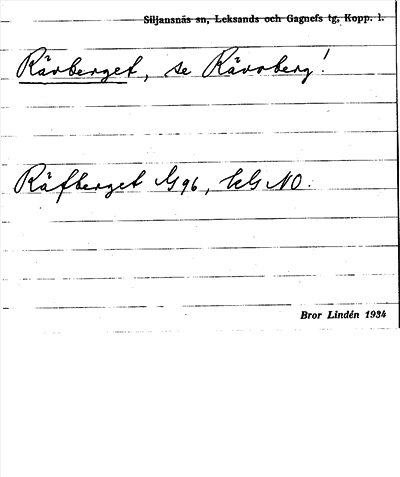 Siljansnäs sn, Leksands och Gagnefs tg, Kopp. l.
Rävberget, se Rävsberg!
Räfberget G 96, kG NO.
Bror Lindén 1934